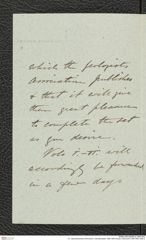 which the Geologists
Association publishes
& that it will give
them great pleasure
to complete the set
as you desire.
Vols I.-II. will
accordingly be forwarded
in a few days